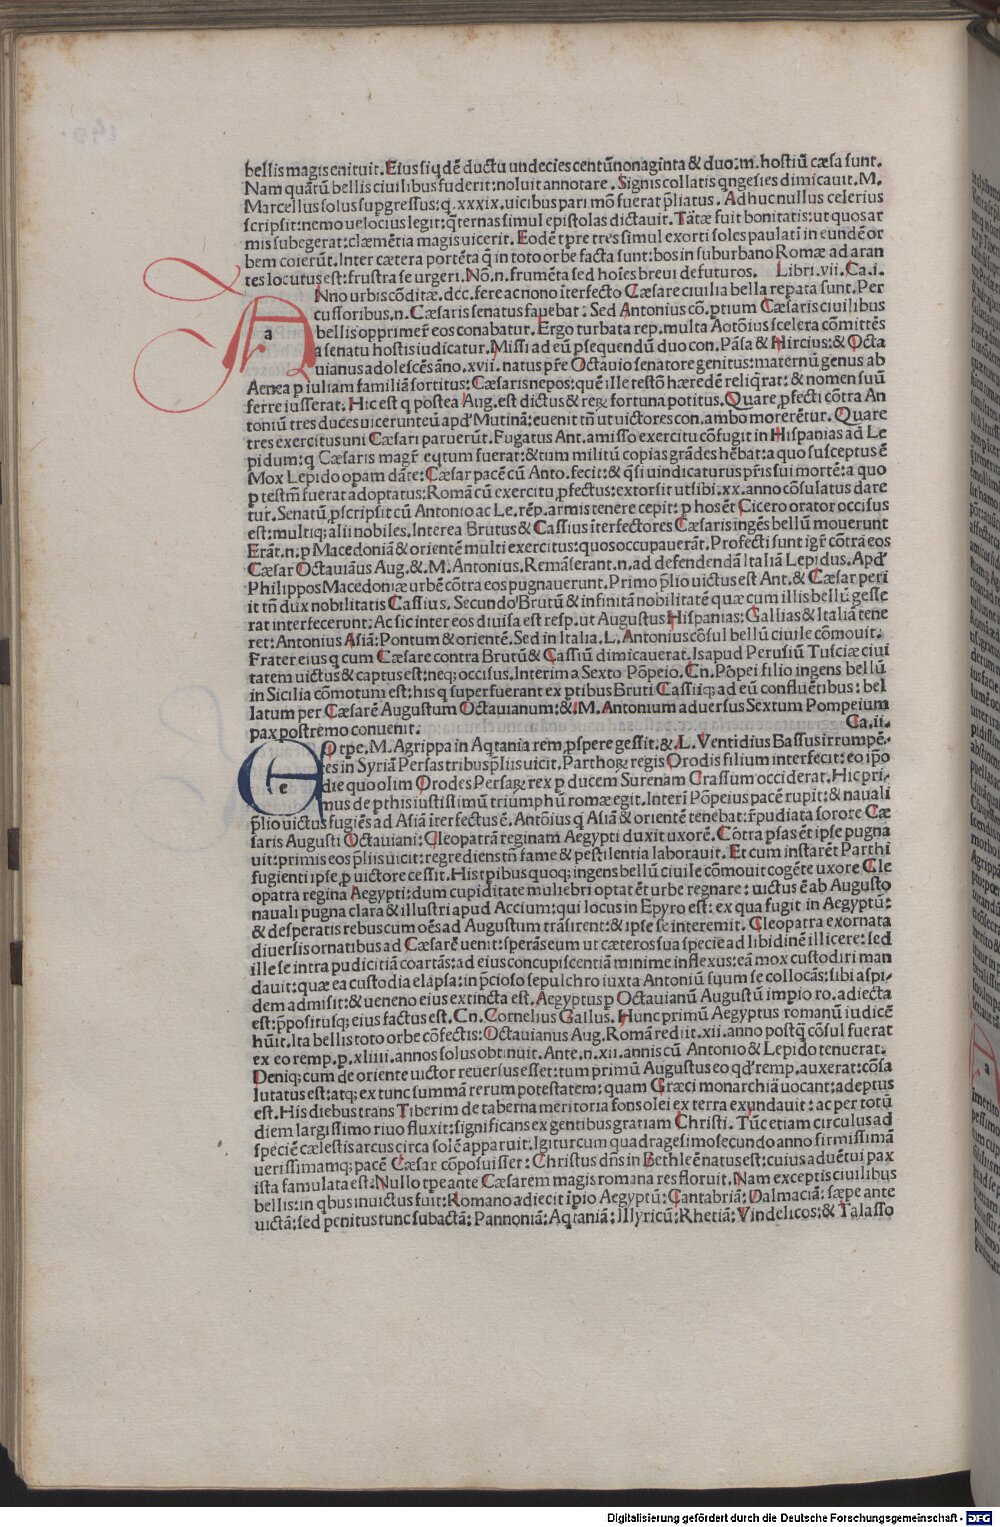 bellis magis enituit. Eius siqdē ductu undecies centūnonaginta & duo: m. hostiū cæsa sunt.
Nam quātū bellis ciuilibus fuderit: noluit annotare. Signis collatis qngesies dimicauit. M.
Marcellus solus supgressus: q. xxxix. uicibus pari mō fuerat pliatus. Adhuc nullus celerius
scripsit: nemo uelocius legit: qternas simul epistolas dictauit. Tātæ fuit bonitatis: ut quos ar
mis subegerat: clæmētia magis uicerit. Eodē tpre tres simul exorti soles paulatī in eundē or
bem coierūt. Inter cætera portēta q in toto orbe facta sunt: bos in suburbano Romæ ad aran
tes locutus est: frustra se urgeri. Nō. n. frumēta sed hoīes breui defuturos. Libri. vii. Ca. i.
a Nno urbis cōditæ. dcc. fere ac nono īterfecto Cæsare ciuilia bella repata sunt. Per
cussoribus. n. Cæsaris senatus fauebat. Sed Antonius cō. ptium Cæsaris ciuilibus
bellis opprimer̄ eos conabatur. Ergo turbata rep. multa Aotōius scelera cōmittēs
a senatu hostis iudicatur. Missi ad eū psequendū duo con. Pāsa & Hircius: & Octa
uianus adolescēs āno. xvii. natus pr̄e Octauio senatore genitus: maternū genus ab
Aenea p iuliam familiā sortitus: Cæsaris nepos: quē ille testō hæredē reliqrat: & nomen suū
ferre iusserat. Hic est q postea Aug. est dictus & reꝝ fortuna potitus. Quare pfecti cōtra An
toniū tres duces uicerunt eū apd' Mutinā: euenit tn̄ ut uictores con. ambo morerētur. Quare
tres exercitus uni Cæsari paruerūt. Fugatus Ant. amisso exercitu cōfugit in Hispanias ad Le
pidum: q Cæsaris magr̄ eqtum fuerat: & tum militū copias grādes hēbat: a quo susceptus ē
Mox Lepido opam dāte: Cæsar pacē cū Anto. fecit: & qsi uindicaturus pr̄is sui mortē: a quo
p testm̄ fuerat adoptatus: Romā cū exercitu pfectus: extorsit ut sibi. xx. anno cōsulatus dare
tur. Senatū pscripsit cū Antonio ac Le. rēp. armis tenere cepit: p hos ēt Cicero orator occisus
est: multiq; alii nobiles. Interea Brutus & Cassius īterfectores Cæsaris ingēs bellū mouerunt
Erāt. n. p Macedoniā & orientē multi exercitus: quos occupauerāt. Profecti sunt igr̄ cōtra eos
Cæsar Octauiāus Aug. & M. Antonius. Remāserant. n. ad defendendā Italiā Lepidus. Apd'
Philippos Macedoniæ urbē cōtra eos pugnauerunt. Primo plio uictus est Ant. & Cæsar peri
it tn̄ dux nobilitatis Cassius. Secundo Brutū & infinitā nobilitatē quæ cum illis bellū gesse
rat interfecerunt: Ac sic inter eos diuisa est resp. ut Augustus Hispanias: Gallias & Italiā tene
ret: Antonius Asiā: Pontum & orientē. Sed in Italia. L. Antonius cōsul bellū ciuile cōmouit.
Frater eius q cum Cæsare contra Brutū & Cassiū dimicauerat. Is apud Perusiū Tusciæ ciui
tatem uictus & captus est: neq; occisus. Interim a Sexto Pōpeio. Cn. Pōpei filio ingens bellū
in Sicilia cōmotum est: his q superfuerant ex ptibus Bruti Cassiiq; ad eū confluētibus: bel
latum per Cæsarē Augustum Octauianum: & M. Antonium aduersus Sextum Pompeium
pax postremo conuenit. Ca. ii.
e O tpe. M. Agrippa in Aqtania rem pspere gessit: & L. Ventidius Bassus irrumpē-
tes in Syriā Persas tribus pliis uicit. Parthoꝝ regis Orodis filium interfecit: eo ipo
die quo olim Orodes Persaꝝ rex p ducem Surenam Crassum occiderat. Hic pri-
mus de pthis iustissimū triumphū romæ egit. Interī Pōpeius pacē rupit: & nauali
plio uictus fugiēs ad Asiā īterfectus ē. Antōius q Asiā & orientē tenebat: r̄pudiata sorore Cæ
saris Augusti Octauiani: Cleopatrā reginam Aegypti duxit uxorē. Cōtra psas ēt ipse pugna
uit: primis eos pliis uicit: regrediens tn̄ fame & pestilentia laborauit. Et cum instarēt Parthi
fugienti ipse p uictore cessit. His tpibus quoq; ingens bellū ciuile cōmouit cogēte uxore Cle
opatra regina Aegypti: dum cupiditate muliebri optat ēt urbe regnare: uictus ē ab Augusto
nauali pugna clara & illustri apud Accium: qui locus in Epyro est: ex qua fugit in Aegyptū:
& desperatis rebus cum oēs ad Augustum trāsirent: & ipse se interemit. Cleopatra exornata
diuersis ornatibus ad Cæsarē uenit: sperās eum ut cæteros sua specie ad libidinē illicere: sed
ille se intra pudicitiā coartās: ad eius concupiscentiā minime inflexus: eā mox custodiri man
dauit: quæ ea custodia elapsa: in pcioso sepulchro iuxta Antoniū suum se collocās: sibi aspi-
dem admisit: & ueneno eius extincta est. Aegyptus p Octauianū Augustū impio ro. adiecta
est: ppositusq; eius factus est. Cn. Cornelius Gallus. Hunc primū Aegyptus romanū iudicē
hūit. Ita bellis toto orbe cōfectis: Octauianus Aug. Romā rediit. xii. anno postq̄ cōsul fuerat
ex eo remp. p. xliiii. annos solus obtinuit. Ante. n. xii. annis cū Antonio & Lepido tenuerat.
Deniq; cum de oriente uictor reuersus esset: tum primū Augustus eo qd' remp. auxerat: cōsa
lutatus est: atq; ex tunc summā rerum potestatem: quam Græci monarchiā uocant: adeptus
est. His diebus trans Tiberim de taberna meritoria fons olei ex terra exundauit: ac per totū
diem largissimo riuo fluxit: significans ex gentibus gratiam Christi. Tūc etiam circulus ad
speciē cælestis arcus circa solē apparuit. Igitur cum quadragesimo secundo anno firmissimā
uerissimamq; pacē Cæsar cōposuisset: Christus dn̄s in Bethleē natus est: cuius aduētui pax
ista famulata est: Nullo tpe ante Cæsarem magis romana res floruit. Nam exceptis ciuilibus
bellis: in qbus inuictus fuit: Romano adiecit īpio Aegyptū: Cantabriā: Dalmaciā: sæpe ante
uictā: sed penitus tunc subactā: Pannoniā: Aqtaniā: Illyricū: Rhetiā: Vindelicos: & Talasso
Digitalisierung gefördert durch die Deutsche Forschungsgemeinschaft - DFG